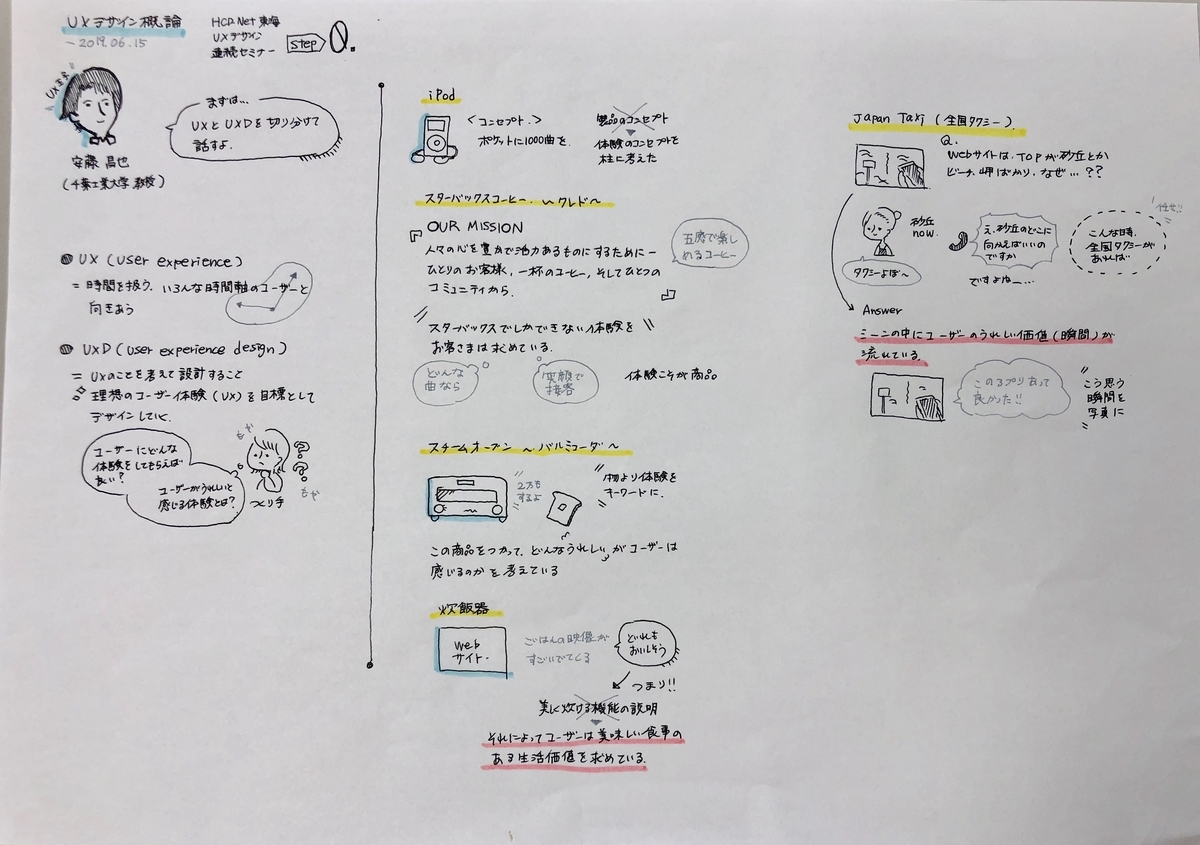 UXデザイン概論
-2019.06.15
HCD.Net東海
UXデザイン
連続セミナー
step 0.
UX
安藤 昌也
(千葉工業大学 教授)
まずは…
UXとUXDを切り分けて
話すよ.
UX (user experience)
= 時間を扱う、いろんな時間軸のユーザーと
向きあう
UXD (user experience design)
= UXのことを考えて設計すること
理想のユーザー体験 (UX) を目標として
デザインしていく
ユーザーにどんな
体験をしてもらえば
良い?
ユーザーがうれしいと
感じる体験とは?
もや
???
もや
つくり手
iPod
<コンセプト.>
ポケットに1000曲を.
製品のコンセプト
体験のコンセプトを
柱に考えた
スターバックスコーヒー. 〜クレド〜
『OUR MISSION
人々の心を豊かで活力あるものにするためにー
ひとりのお客様、一杯のコーヒー、そしてひとつの
コミュニティから.
』
五感で楽し
めるコーヒー
スターバックスでしかできない体験を
お客さまは求めている.
どんな
曲なら
笑顔で
接客
体験こそが商品
スチームオーブン 〜バルミューダ〜
2万も
するよ
"物より体験を
キーワードに."
この商品をつかって、どんな"うれしい"がユーザーは
感じるのかを考えている
炊飯器
web
サイト.
ごはんの映像が
すごいでてくる
どれも
おいしそう
つまり!!
美しく炊ける機能の説明
それによってユーザーは美味しい食事の
ある生活価値を求めている.
Japan Taxi (全国タクシー).
Q.
Webサイトは、TOPが砂丘とか
ビーチ、岬ばかり、なぜ…??
砂丘
now.
タクシーよぼ〜
え、砂丘のどこに
向かえばいいの
ですか
ですよねー…
任せ!!
こんな時、
全国タクシーが
あれば
Answer
シーンの中にユーザーのうれしい価値(瞬間)が
流れている.
このアプリあって
良かった!!
"こう思う
瞬間を
写真に"